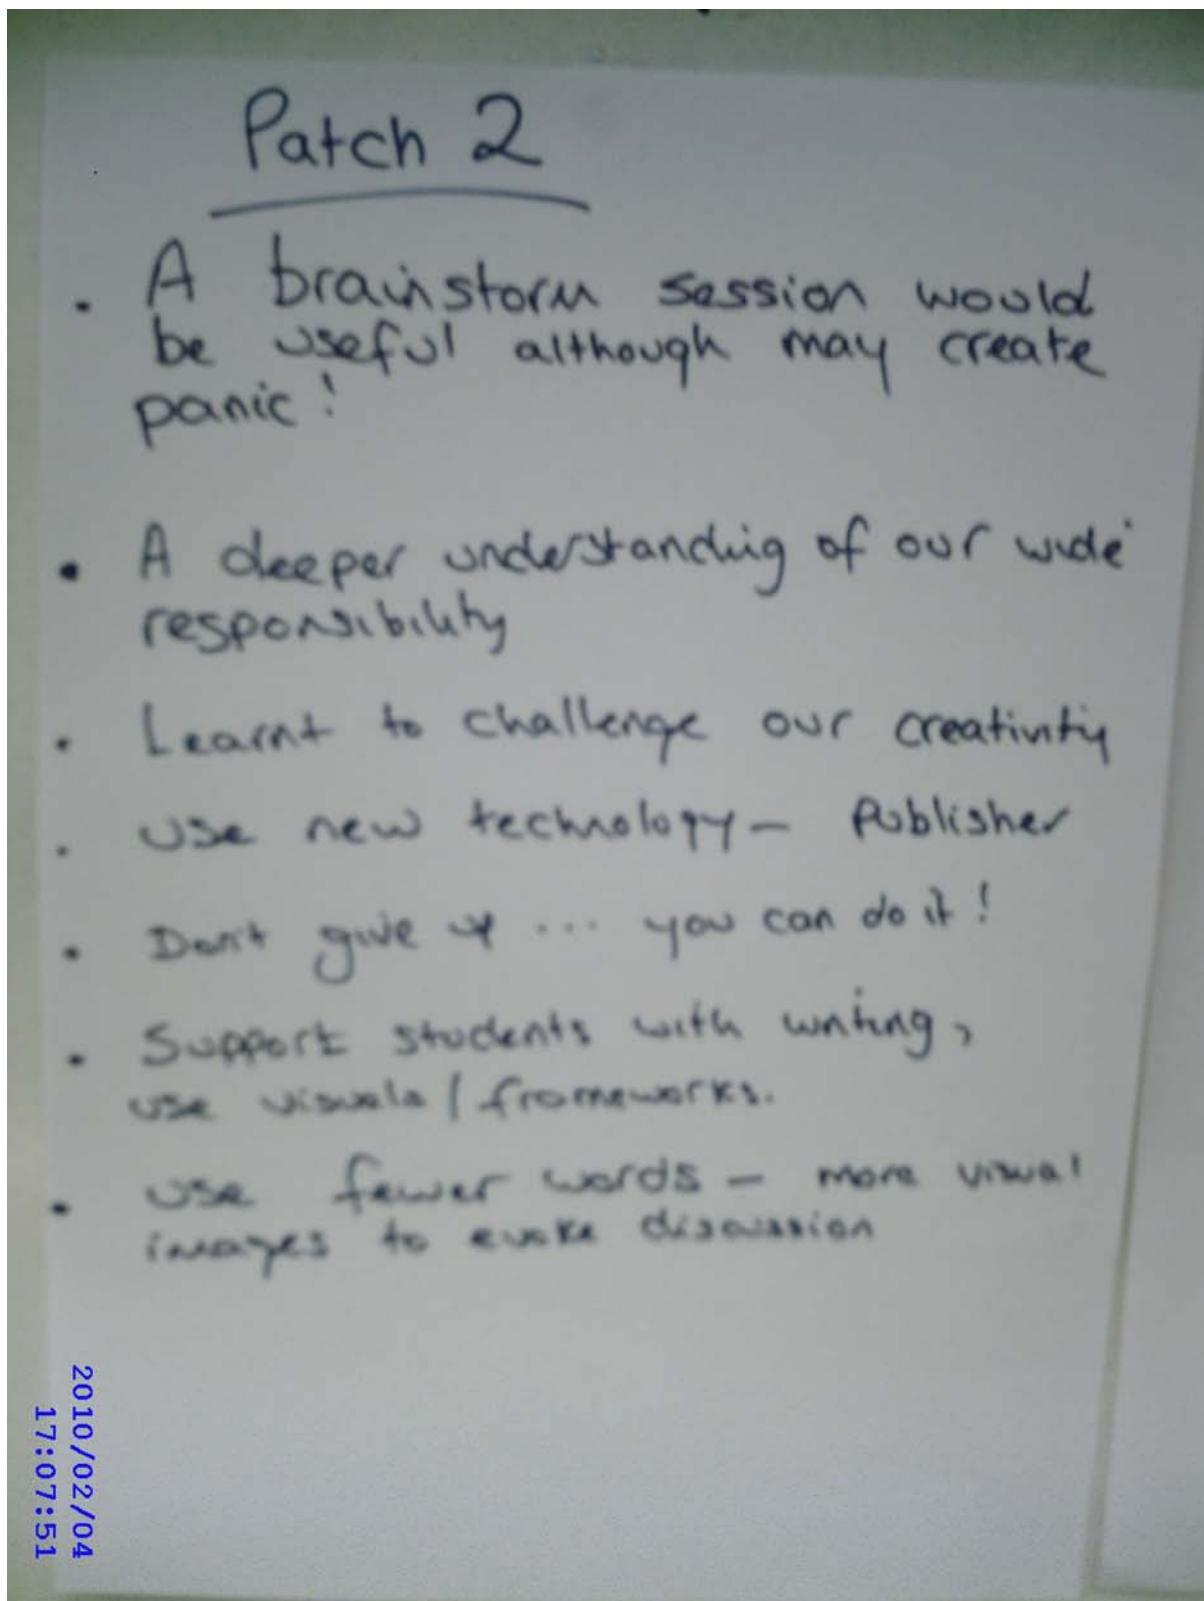 Patch 2
• A brainstorm session would
be useful although may create
panic!
• A deeper understanding of our wide
responsibility
• Learnt to challenge our creativity
• Use new technology – Publisher
• Don't give up ... you can do it!
• Support students with writing,
use visuals / frameworks.
• Use fewer words – more visual
images to evoke discussion
2010/02/04
17:07:51